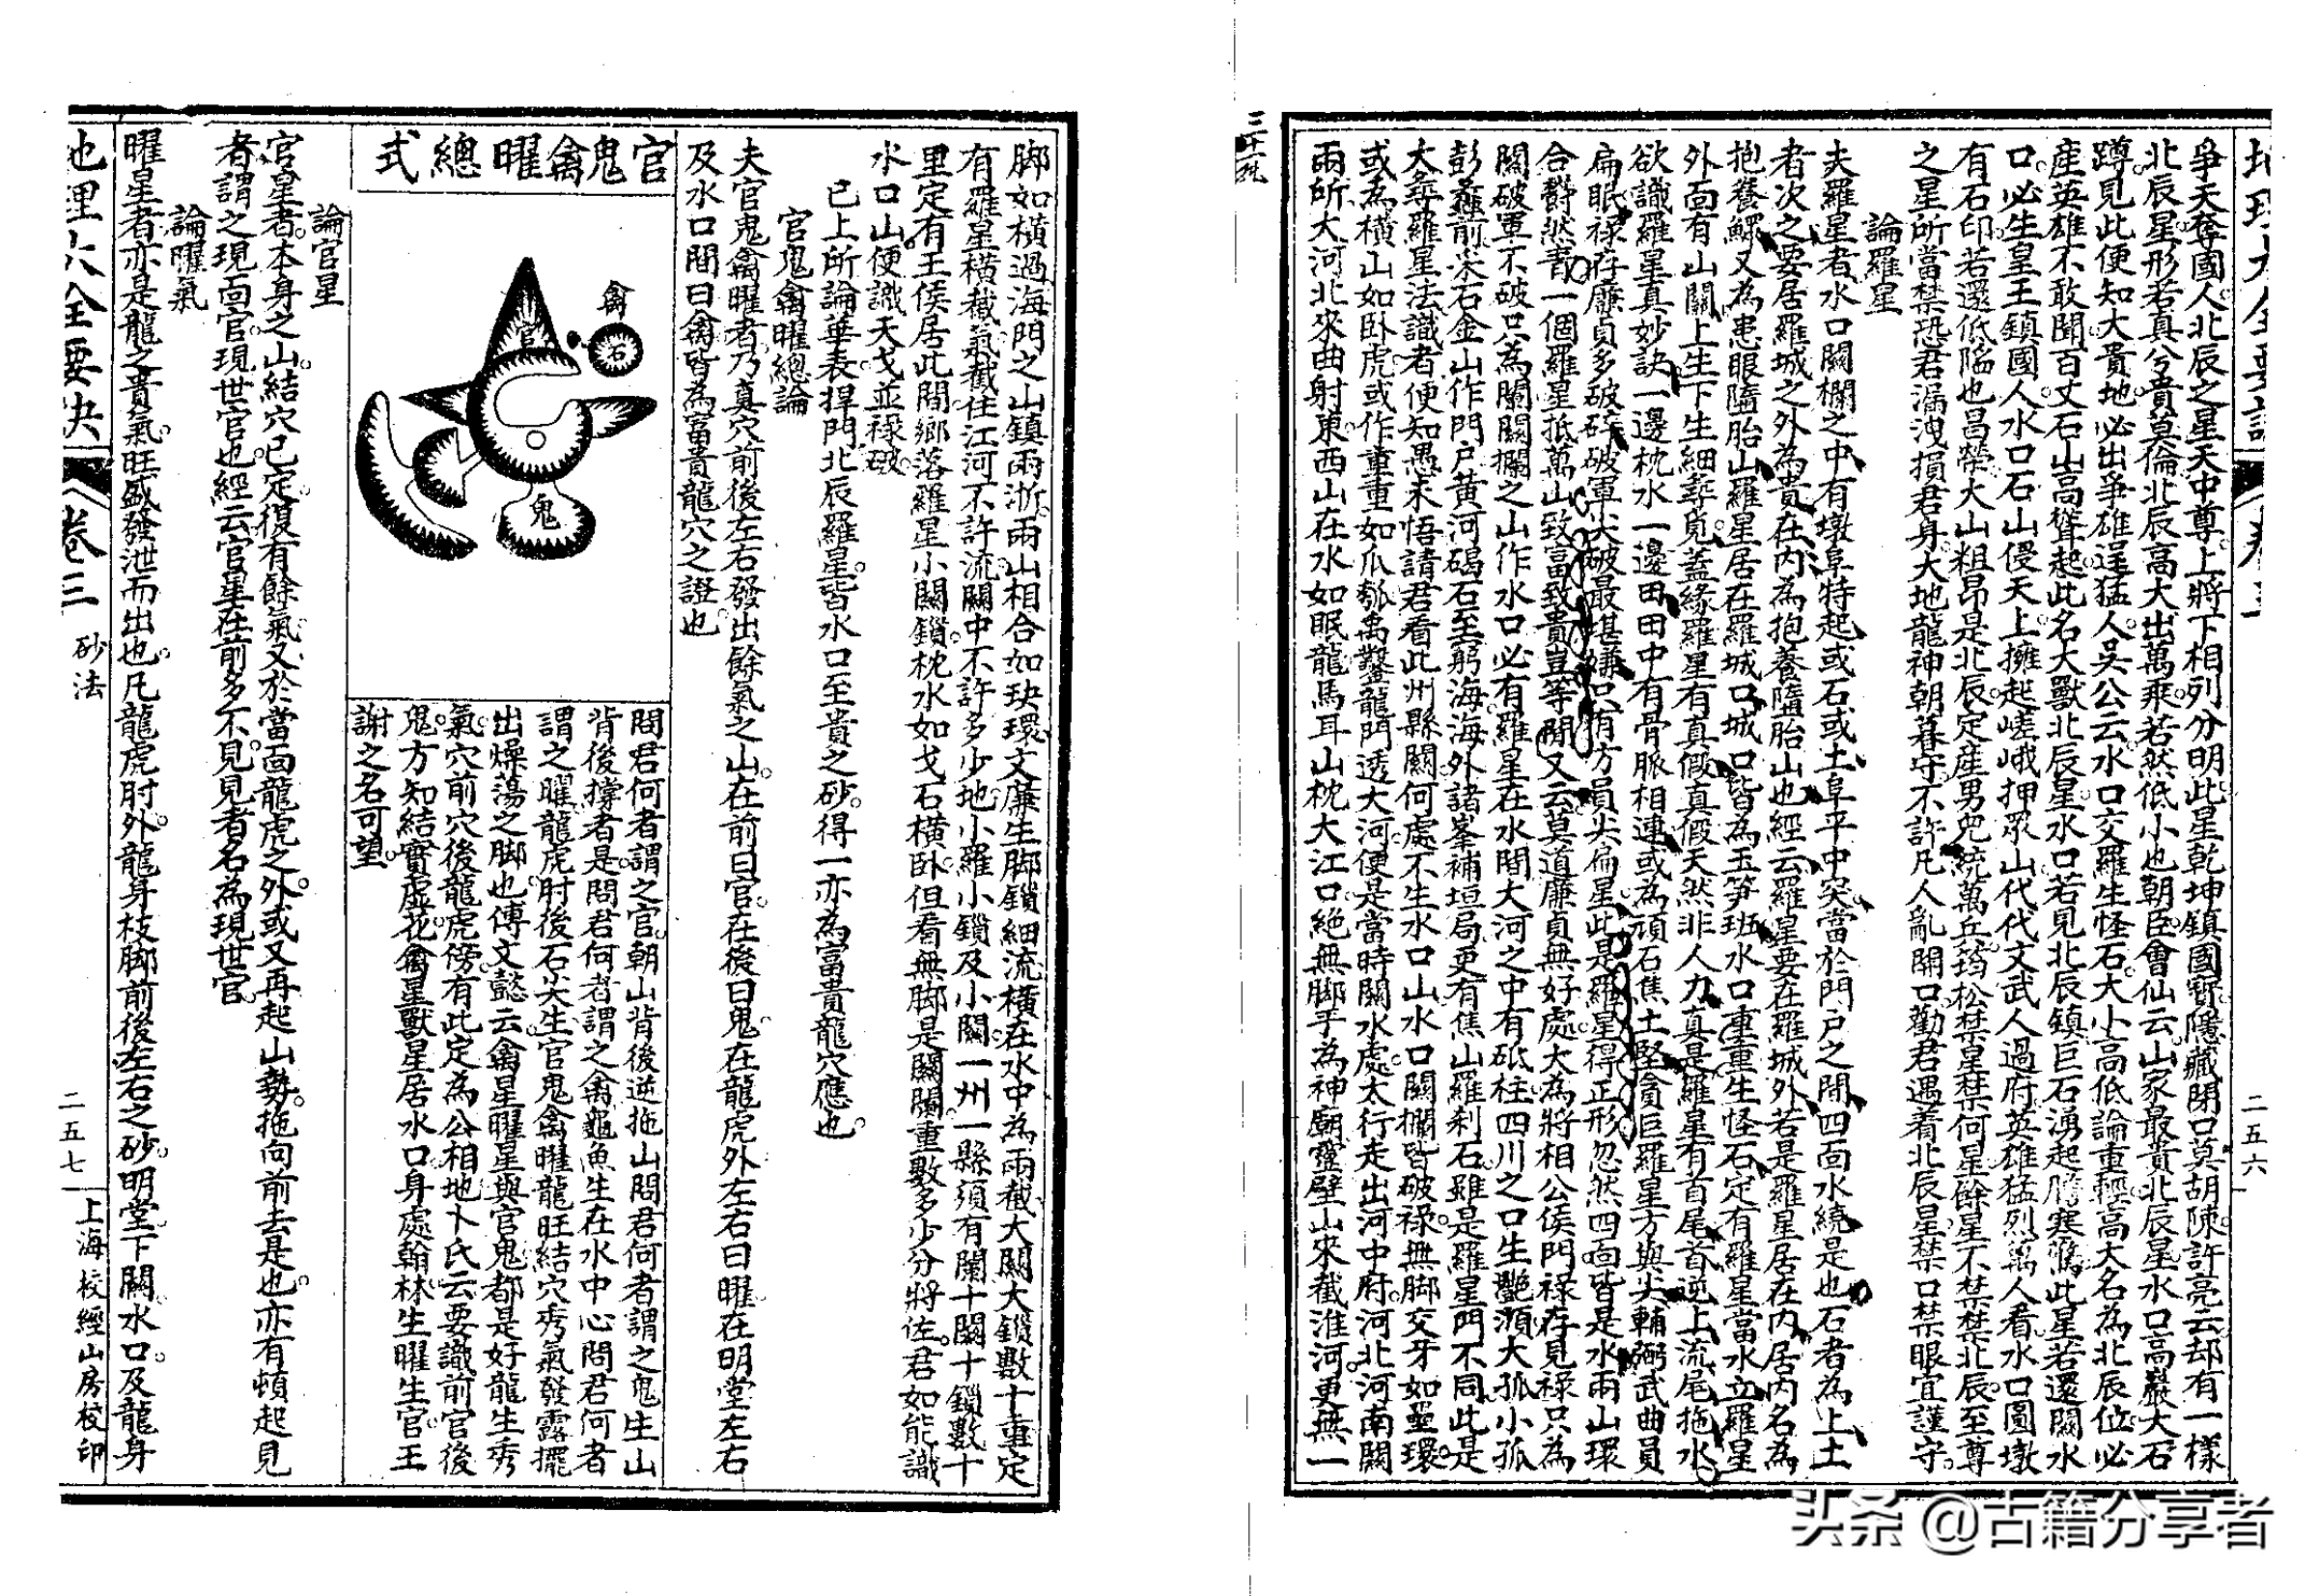 地理大全要訣
卷三
二五六
爭天奪國人北辰之星天中尊上將下相列分明此星乾坤鎮國寶隱藏閉口莫胡陳許亮云却有一樣
北辰星形若真兮貴莫倫北辰高大出萬乘若然低小也朝臣會仙云山家最貴北辰星水口高巖大石
蹲見此便知大貴地必出爭雄逞猛人吳公云水口交羅生怪石大小高低論重輕高大名為北辰位必
產英雄不敢聞百丈石山高聳起此名大獸北辰星水口若見北辰鎮巨石湧起膽寒驚此星若還關水
口必生皇王鎮國人水口石山侵天上擁起嵯峨押眾山代代文武人過府英雄猛烈萬人看水口圓墩
有石印若還低陷也昌榮大山粗昂是北辰定産男兒統萬兵鈐松禁星禁何星餘星不禁禁北辰至尊
之星所當禁恐君漏洩損君身大地龍神朝暮守不許凡人亂開口勸君遇着北辰星禁口禁眼宜謹守
論羅星
夫羅星者水口關欄之中有墩阜特起或石或土阜平中突當於門户之間四面水繞是也石者為上土
者次之要居羅城之外為貴在內為抱養墮胎山也經云羅星要在羅城外若是羅星居在內居內名為
抱養鰥又為患眼墮胎山羅星居在羅城口城口皆為玉笋班水口重重生怪石定有羅星當水立羅星
外面有山關上生下生細尋覓蓋緣羅星有真假真假天然非人力真是羅星有首尾首逆上流尾拖水
欲識羅星真妙訣一邊枕水一邊田田中有骨脈相連或為頑石焦土堅貪巨羅星方與尖輔弼武曲員
扁眠祿存廉貞多破碎破軍尖破最堪嫌只有方員尖扁星此是羅星得正形忽然四面皆是水兩山環
合鬱然青一個羅星抵萬山致富致貴豈等閒又云莫道廉貞無好處大為將相公侯門祿存見祿只為
關破軍不破只為關關攔之山作水口必有羅星在水間大河之中有砥柱四川之口生灩澦大孤小孤
彭蠡前采石金山作門户黃河碣石至躬海海外諸峯補垣局更有焦山羅刹石雖是羅星門不同此是
大尋羅星法識者便知愚未悟請君看此州縣關何處不生水口山水口關欄皆破祿無脚交牙如壘環
或為橫山如卧虎或作重重如瓜瓠禹鑿龍門透大河便是當時關水處太行走出河中府河北河南關
兩所大河北來曲射東西山在水如眠龍馬耳山枕大江口絕無脚手為神廟靈壁山來截淮河更無一
脚如橫過海門之山鎮兩浙兩山相合如玦環文廉生脚鎖細流橫在水中為兩截大關大鎖數十重定
有羅星橫截氣截住江河不許流關中不許多少地小羅小鎖及小關一州一縣須有闌十關十鎖數十
里定有王侯居此間鄉落羅星小關鎖枕水如戈石橫卧但看無脚是關闌重數多少分將佐君如能識
水口山便識天戈並祿破
已上所論華表捍門北辰羅星皆水口至貴之砂得一亦為富貴龍穴應也
官鬼禽曜總論
夫官鬼禽曜者乃真穴前後左右發出餘氣之山在前曰官在後曰鬼在龍虎外左右曰曜在明堂左右
及水口間曰禽皆為富貴龍穴之證也
官鬼禽曜總式
禽
石
官
鬼
問君何者謂之官朝山背後逆拖山問君何者謂之鬼生山
背後撐者是問君何者謂之禽龜魚生在水中心問君何者
謂之曜龍虎肘後石尖生官鬼禽曜龍旺結穴秀氣發露擺
出燥蕩之脚也傅文懿云禽星曜星與官鬼都是好龍生秀
氣穴前穴後龍虎傍有此定為公相地卜氏云要識前官後
鬼方知結實虛花禽星獸星居水口身處翰林生曜生官王
謝之名可望
論官星
官星者本身之山結穴已定復有餘氣又於當面龍虎之外或又再起山勢拖向前去是也亦有頓起見
者謂之現面官現世官也經云官星在前多不見見者名為現世官
論曜氣
曜星者亦是龍之貴氣旺盛發泄而出也凡龍虎肘外龍身枝脚前後左右之砂明堂下關水口及龍身
地理大全要訣
卷三
砂法
二五七
上海校經山房校印
头条@古籍分享者